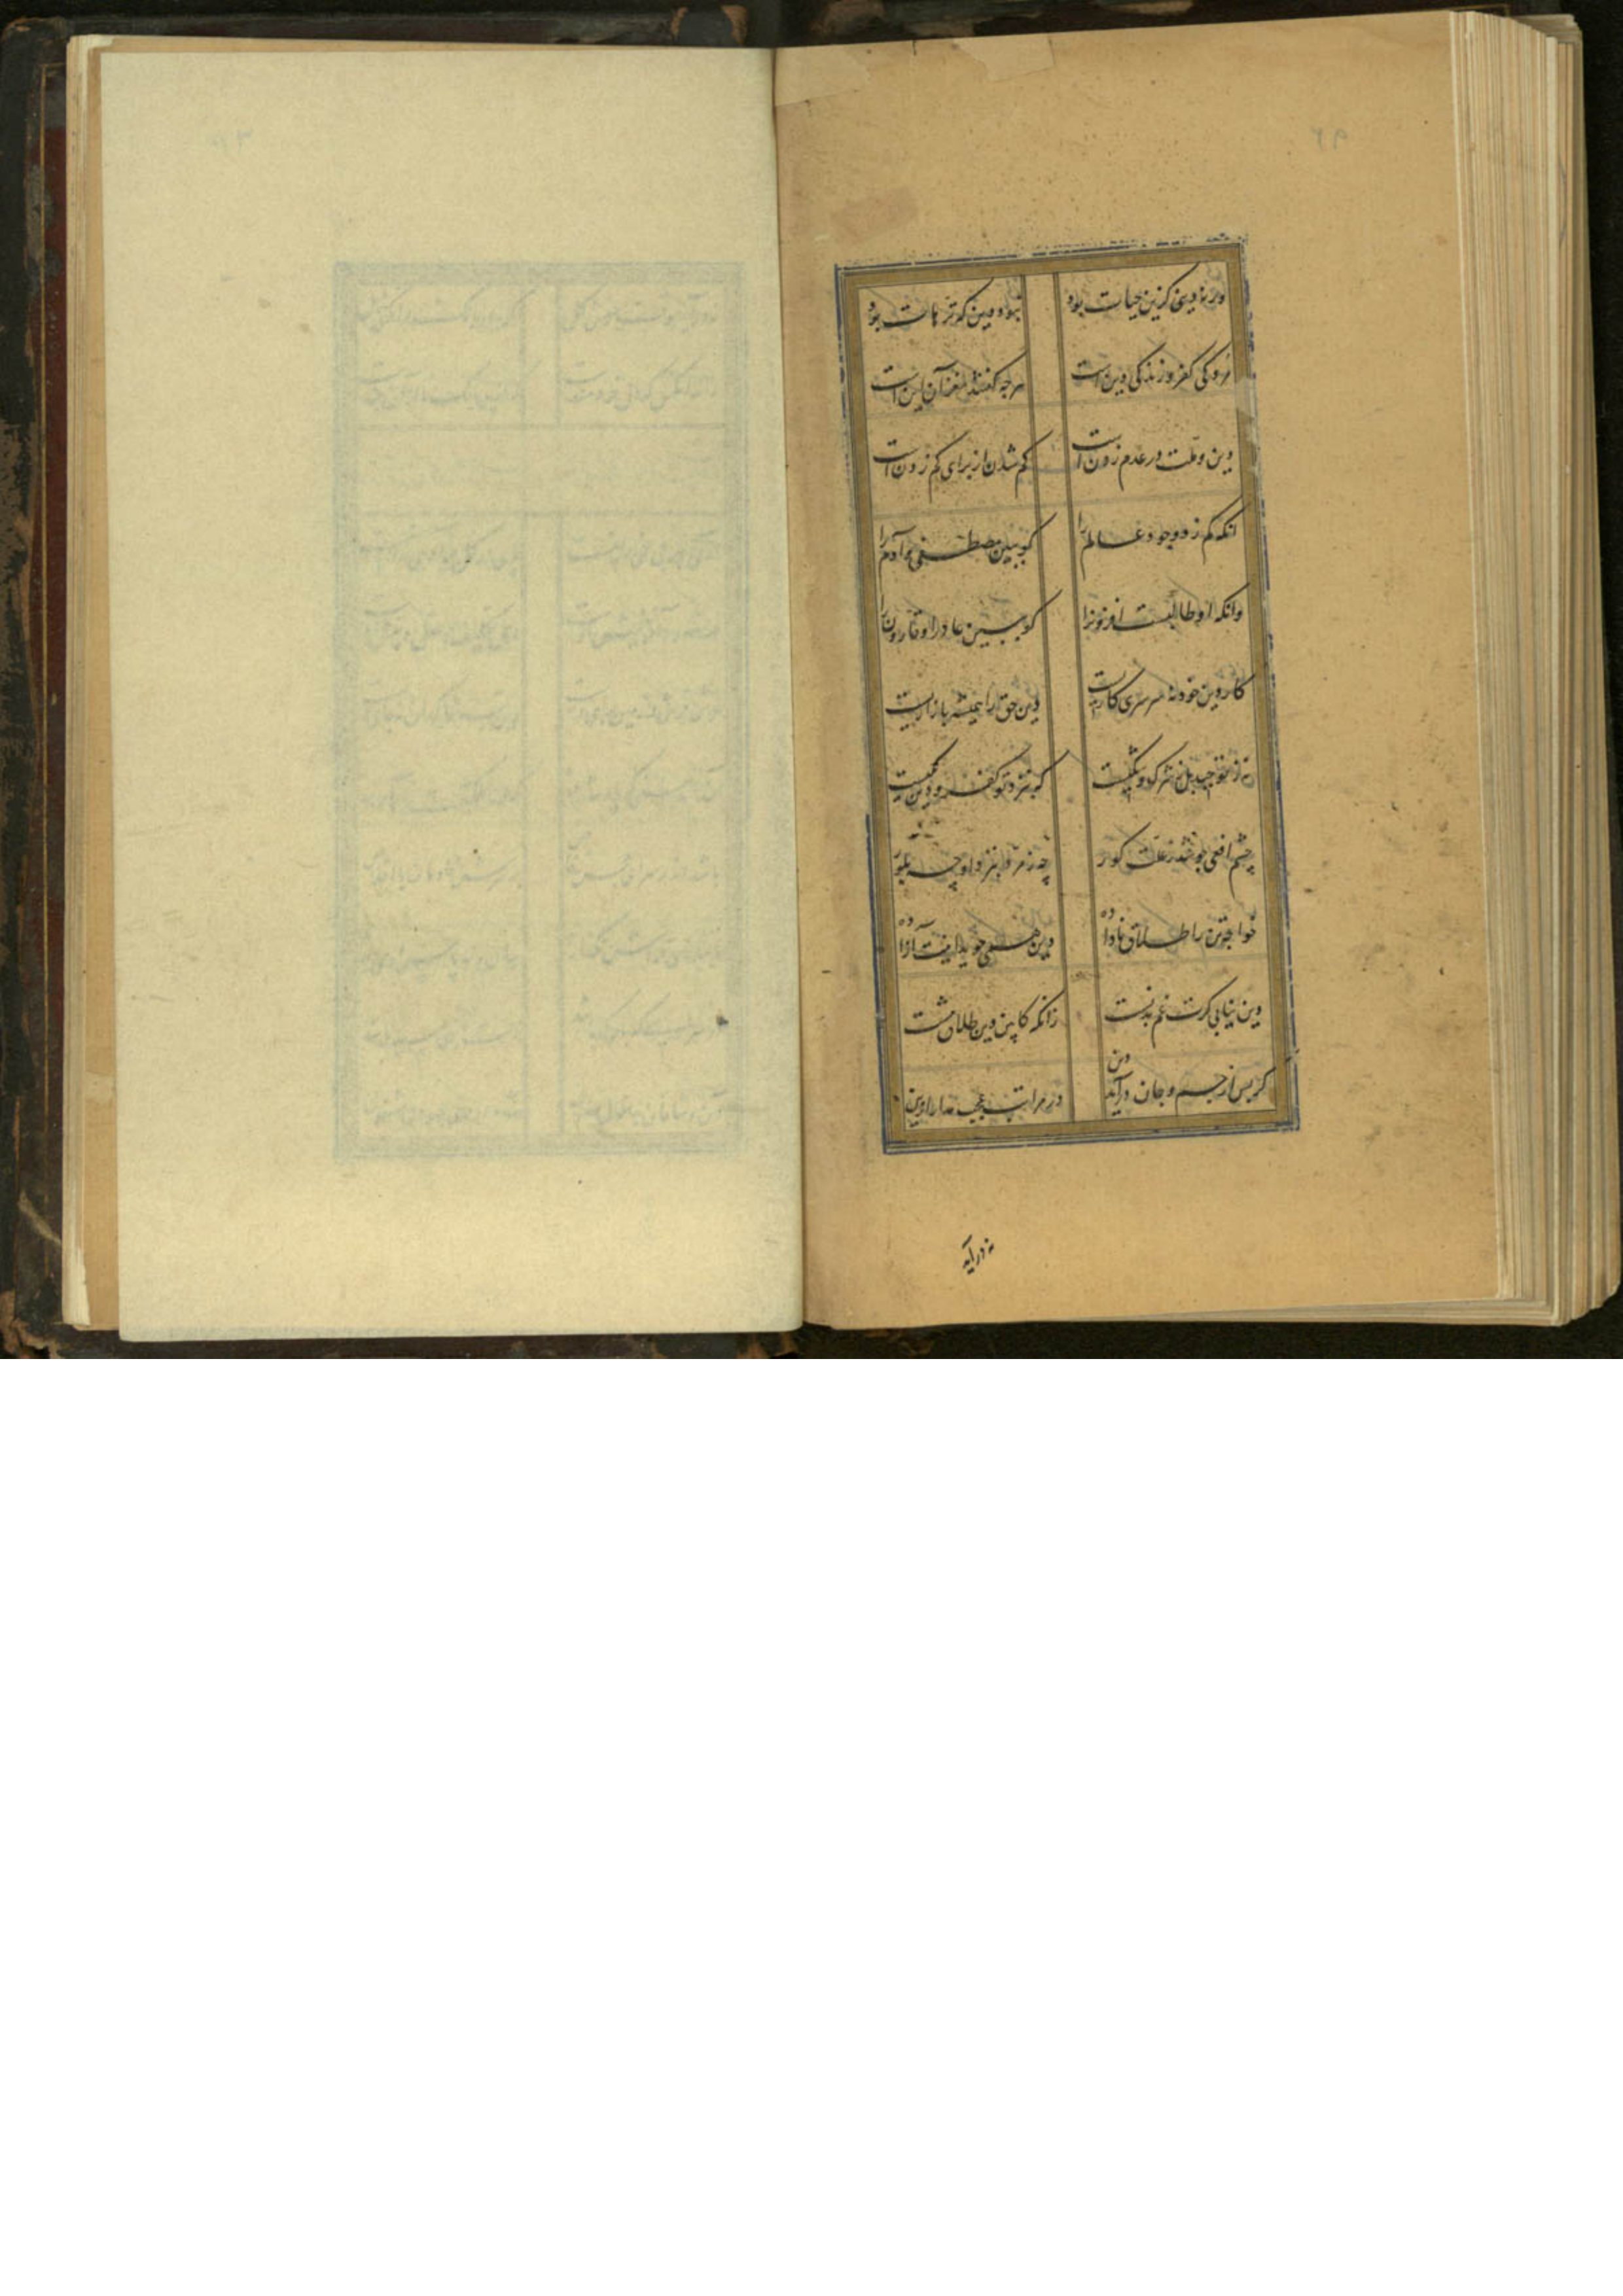 ور نه دینی کزین حیات بود نبود دین که ترهات بود
مردگی کفر و زندگی دین است هرچه گفتند مغز آن این است
دین و ملت در عدم زدن است کم شدن از برای کم زدن است
آنکه کم زد وجود عالم را گو ببین مصطفی و آدم را
وانکه او طالبست افزونرا گو ببین عاد را و قارون را
کار دین خود نه سرسری کاریست دین حق را همیشه بازاریست
نه ز توحید بل ز شرک و شکیست که بنزد تو کفر و دین یکیست
چشم افعی چو شد ز علت کور چه زمرد بنزد او چه بلور
خواجه تن را طلاق نا داده دین همی جوید اینت آزاده
دین نیابی گرت غم بدنست زانکه کابین دین طلاق تنست
گر پس از جسم و جان درآید دین در مراتب عجب مدار از این
نه درآید
۹۲